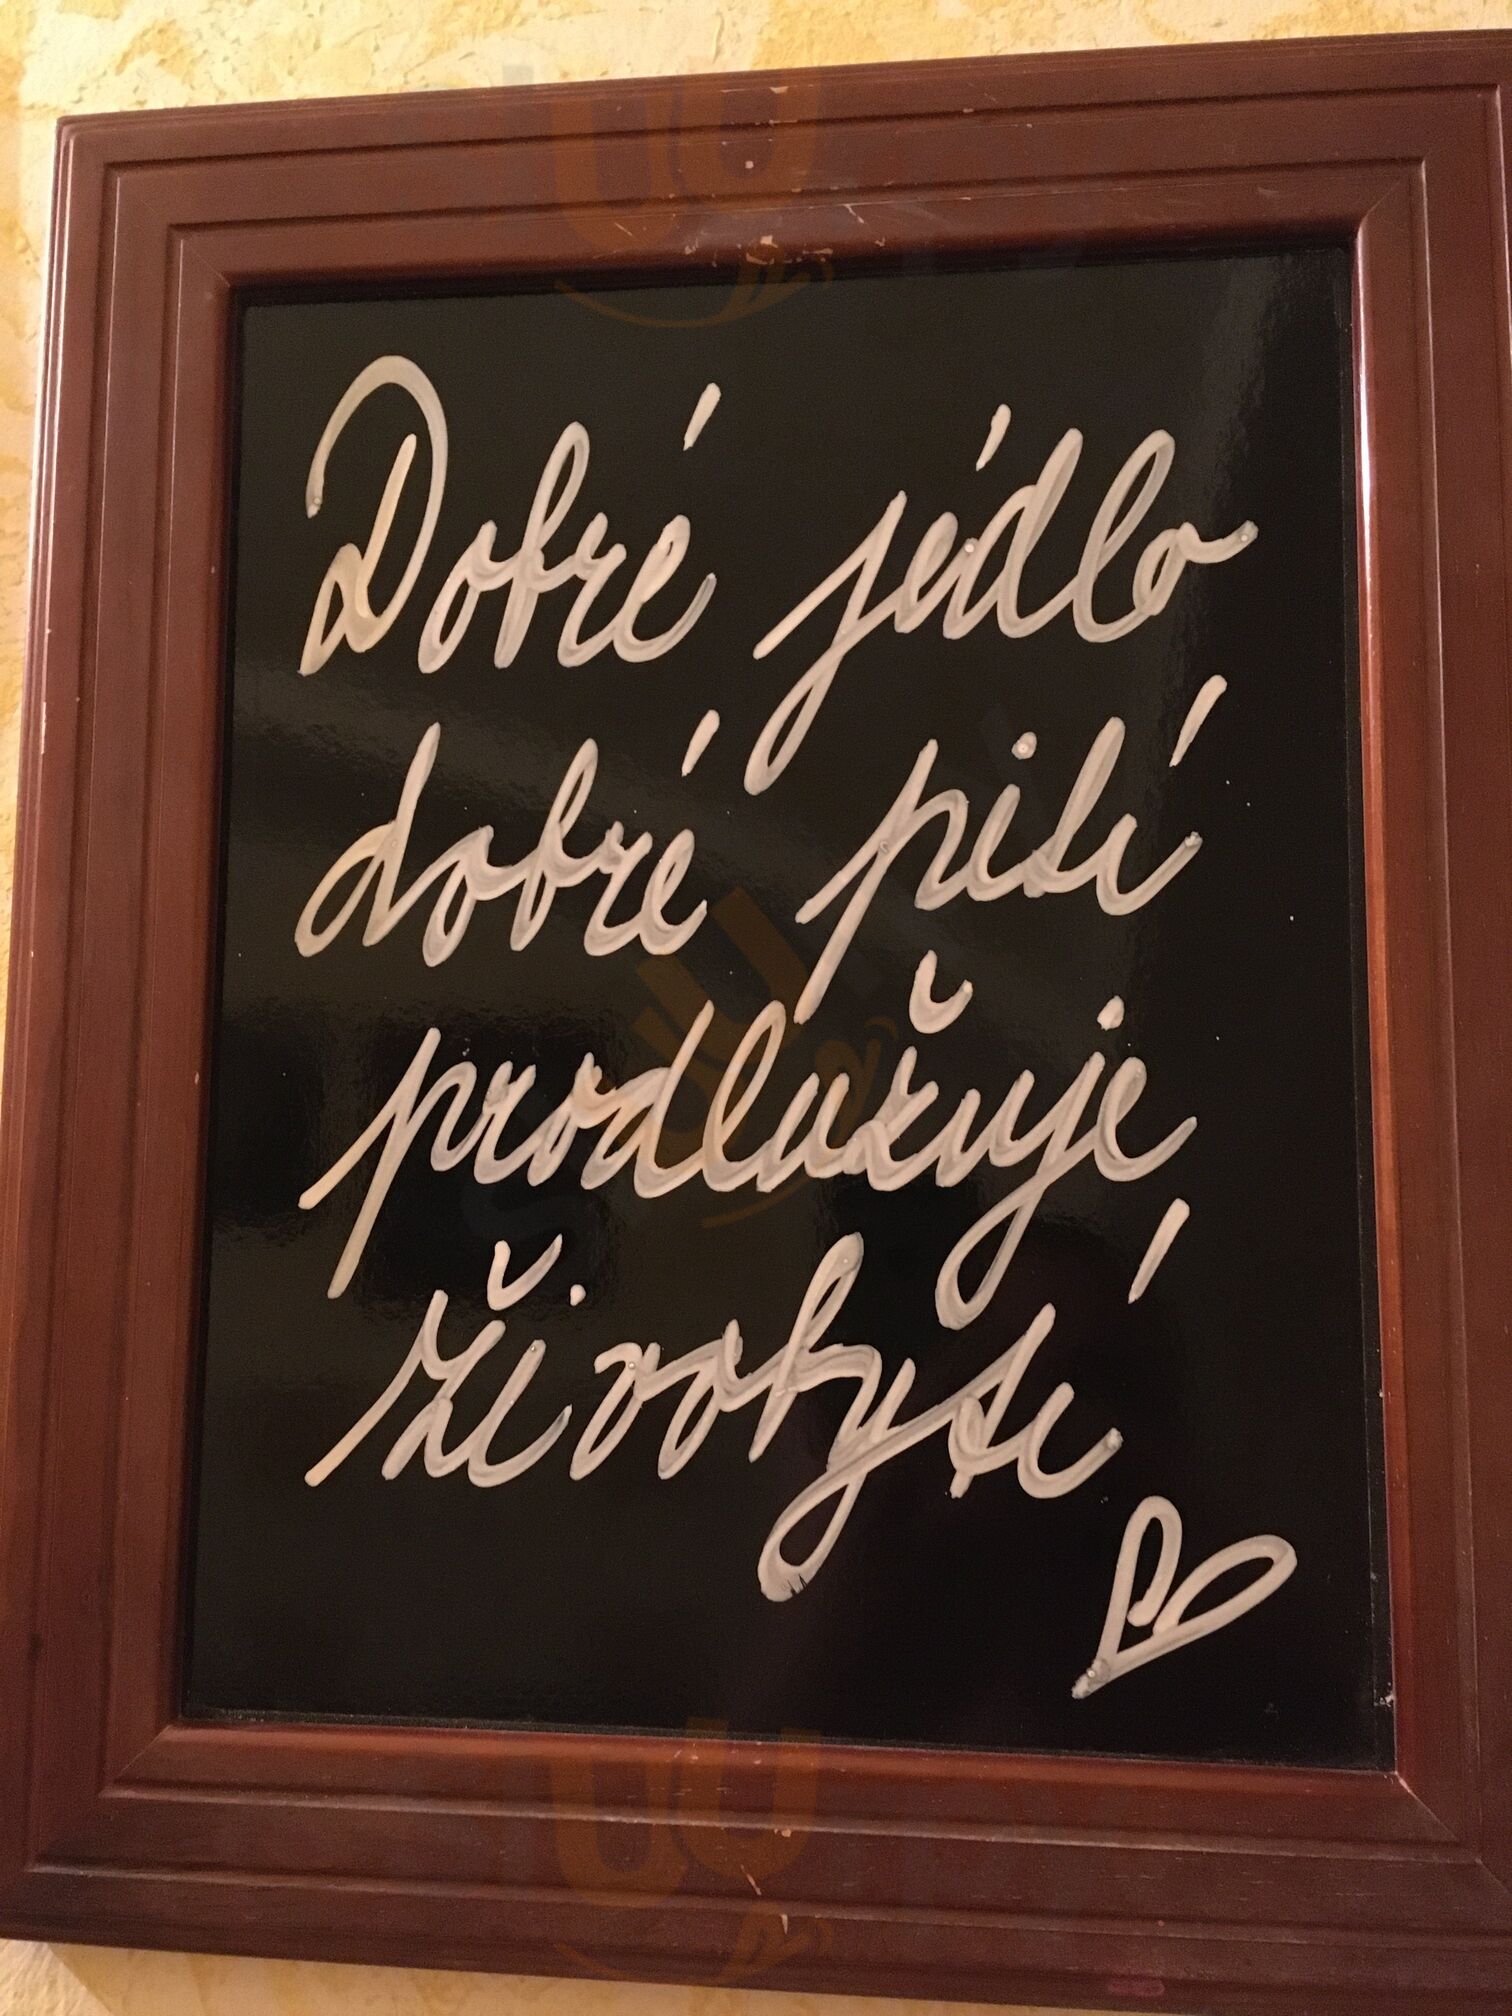 Dobré jídlo
dobré pití
prodlužuje
živobytí